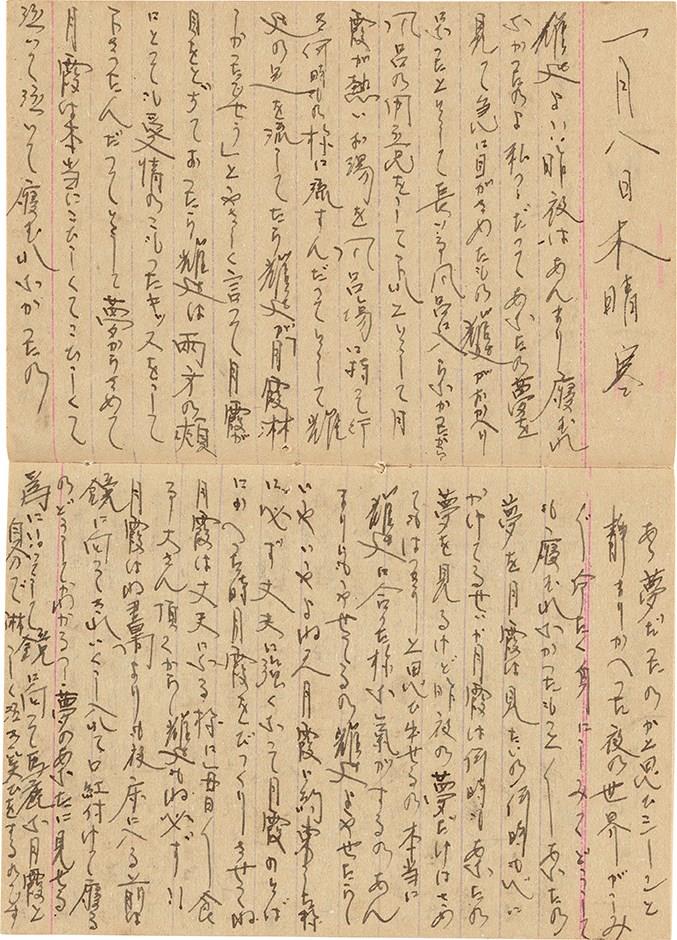 一月八日木晴寒
雄丈よ 昨夜はあんまり寝むれ
なかったのよ 私ったって あなたの夢を
見て急に目がさめたもの 雄丈がお帰り
になったと言って長い事風呂に入らなかったから
風呂の用意をして下れと言って月
霞が熱いお湯を風呂場に持って行
き何時もの様に流すんだって言って 雄
丈の足を流してたら雄丈が月霞淋
しかったでせう」とやさしく言って月霞が
目をとぢてあったら雄丈は両方の頬
にとっても愛情のこもったキッスをして
下さったんだって言って 夢からさめて
月霞は本当にこひしくてこひしくて
泣いて泣いて寝むれなかったの
あゝ夢だったのかと思ひシーンと
静まりかへった夜の世界がしみ
〲冷たく身にしみてどうして
も寝むれなかったもの あなたの
夢を月霞は見たいの何時も心に
かけてるせいか月霞は何時もあなたの
夢を見るけど昨夜の夢だけはさめ
てもはっきりと思ひ出せるの 本当に
雄丈に合った様な気がするの あん
まりにもやせてるの 雄丈よやせたらし
いやいやよ ね 月霞に約束した様
に必ず丈夫に強くなって月霞のそば
にかへった時月霞をびっくりさせてね
月霞は丈夫になる様に毎日〱食
事 大さん頂くから 雄丈もね必ず!!
月霞はね書筒よりも夜床に入る前は
鏡に向ってきれいに 入れて口紅付けて寝る
のどうしてかわかる? 夢のあなたに見せる
為にって 鏡に向って馬鹿な月霞と
自分で淋しく泣き笑ひをするのです